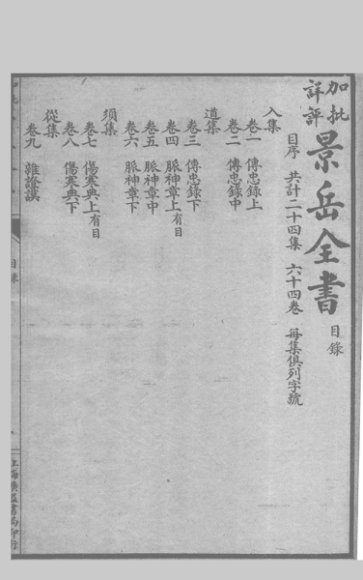 加批詳評景岳全書目錄
目序 共計二十四集 六十四卷 每集俱列字號
入集
卷一 傳忠錄上
卷二 傳忠錄中
道集
卷三 傳忠錄下
卷四 脈神章上有目
卷五 脈神章中
卷六 脈神章下
須集
卷七 傷寒典上有目
卷八 傷寒典下
從集
卷九 雜證謨
目錄